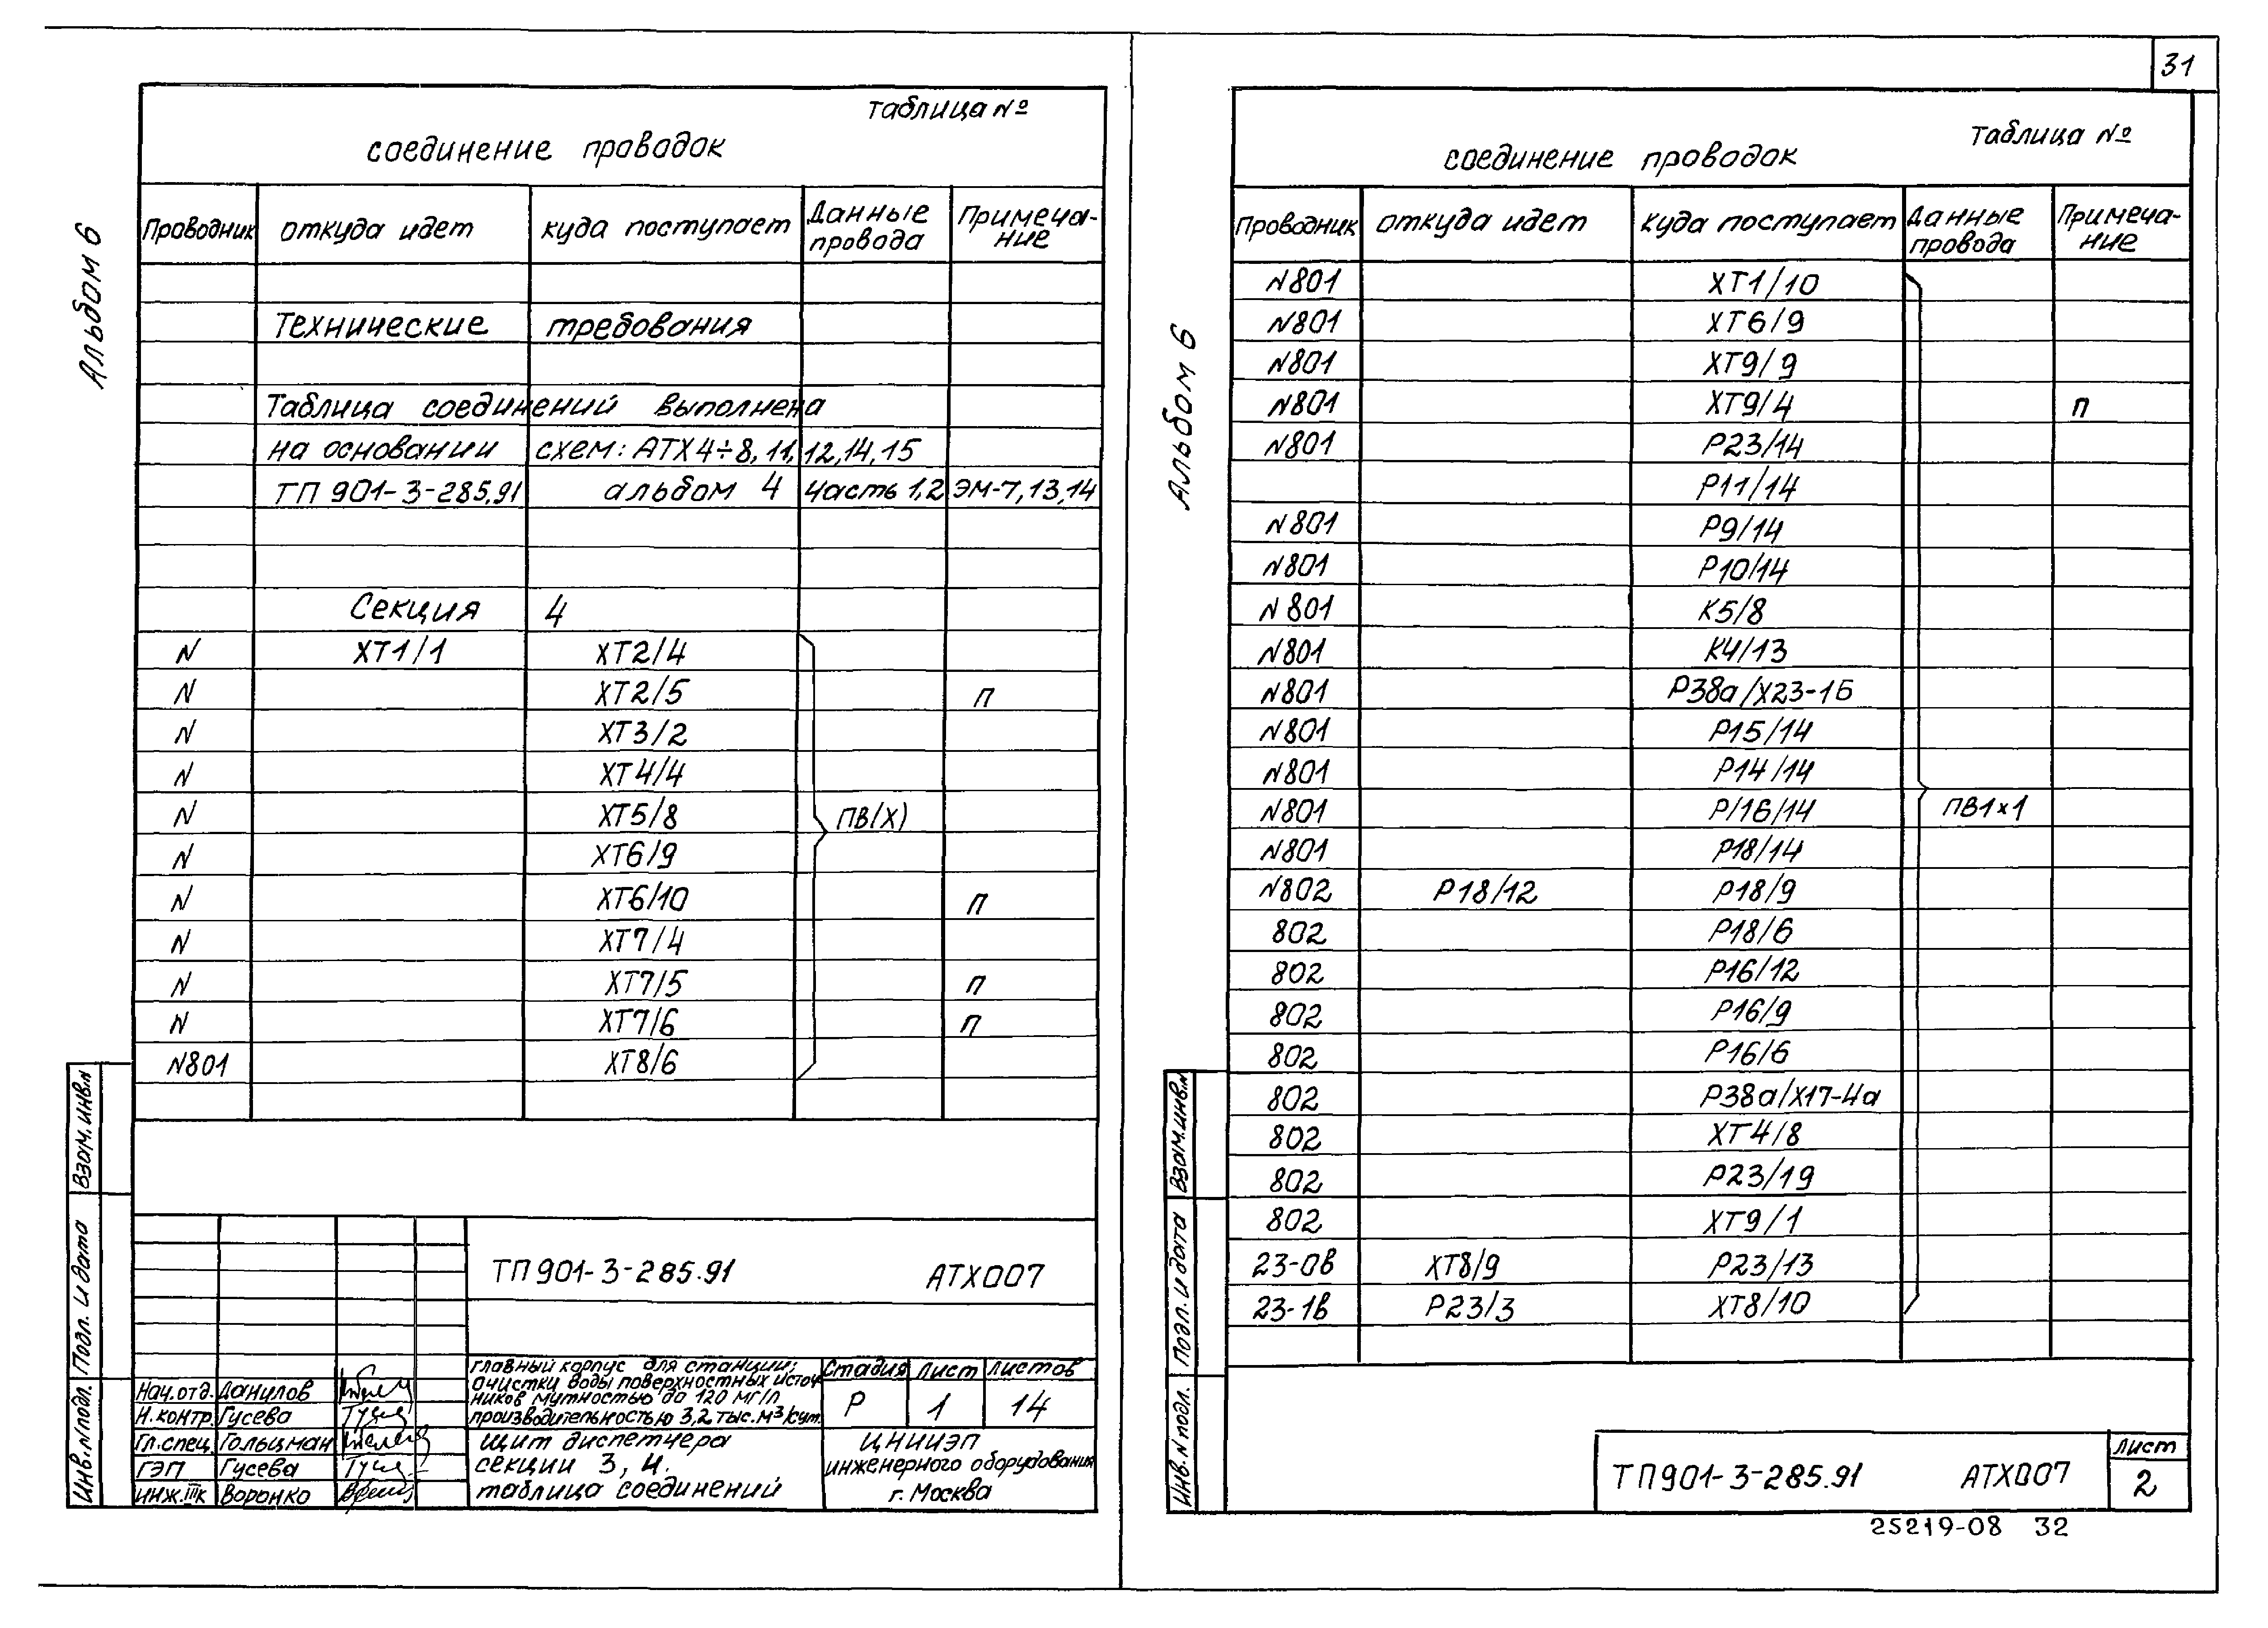 31
Альбом 6
Таблица №
соединение проводок
Проводник откуда идет куда поступает Данные провода Примеча-ние
Технические требования
Таблица соединений выполнена
на основании схем: АТХ4÷8, 11, 12, 14, 15
ТП 901-3-285.91 альбом 4 Часть 1,2 ЭМ-7,13,14
Секция 4
N ХТ1/1 ХТ2/4
N ХТ2/5 п
N ХТ3/2
N ХТ4/4
N ХТ5/8 ПВ(Х)
N ХТ6/9
N ХТ6/10 п
N ХТ7/4
N ХТ7/5 п
N ХТ7/6 п
N801 ХТ8/6
Взам.инв.N
Подп. и дата
Инв.N подл.
ТП901-3-285.91 АТХ007
Нач.отд. Данилов
Н.контр. Гусева
Гл.спец. Гольцман
ГЭП Гусева
инж.IIIк Воронко
главный корпус для станции
очистки воды поверхностных источ-
ников мутностью до 120 мг/л
производительностью 3,2 тыс.м³/сут.
щит диспетчера
секции 3, 4.
таблица соединений
Стадия Лист Листов
Р 1 14
ЦНИИЭП
инженерного оборудования
г. Москва
Альбом 6
Таблица №
соединение проводок
Проводник откуда идет куда поступает Данные провода Примеча-ние
N801 ХТ1/10
N801 ХТ6/9
N801 ХТ9/9
N801 ХТ9/4 п
N801 Р23/14
Р11/14
N801 Р9/14
N801 Р10/14
N801 К5/8
N801 К4/13
N801 Р38а/Х23-1Б
N801 Р15/14
N801 Р14/14
N801 Р/16/14 ПВ1х1
N801 Р18/14
N802 Р18/12 Р18/9
802 Р18/6
802 Р16/12
802 Р16/9
802 Р16/6
802 Р38а/Х17-4а
802 ХТ4/8
802 Р23/19
802 ХТ9/1
23-0в ХТ8/9 Р23/13
23-1в Р23/3 ХТ8/10
Взам.инв.N
Подп. и дата
Инв.N подл.
ТП901-3-285.91 АТХ007
Лист
2
25219-08 32